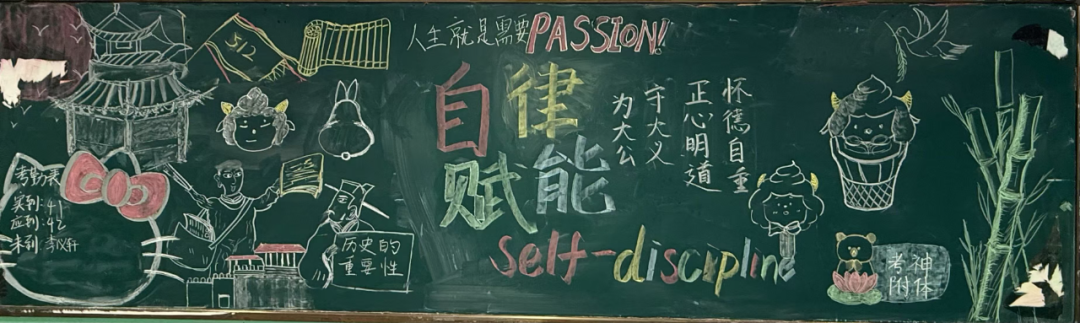 人生就是需要PASSION!
512
自律
赋能
self-discipline
怀德自重
正心明道
守大义
为大公
考勤表
实到:41
应到:42
未到:李仪轩
历史的
重要性
考神
附体